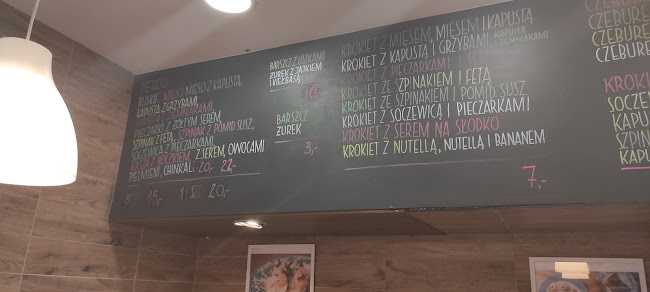 PIEROGI
RUSKIE, MIĘSO, MIĘSO Z KAPUSTĄ,
KAPUSTA Z GRZYBAMI,
PIECZARKI Z ŻÓŁTYM SEREM,
SZPINAK Z FETĄ, SZPINAK Z POMID. SUSZ.
SOCZEWICA Z PIECZARKAMI
KASZA Z BOCZKIEM, Z SEREM, OWOCAMI
PIELMIENI, CHINKAL, 20,- 22,-
8 15,- 11 SZT. 20,-
BARSZCZ Z USZKAMI
ŻUREK Z JAJKIEM
I KIEŁBASĄ
BARSZCZ
ŻUREK
3,-
KROKIET Z MIĘSEM, MIĘSEM I KAPUSTĄ
KROKIET Z KAPUSTĄ I GRZYBAMI, KAPUSTĄ
KROKIET Z PIECZARKAMI I
KROKIET ZE SZPINAKIEM I FETĄ
KROKIET ZE SZPINAKIEM I POMID. SUSZ.
KROKIET Z SOCZEWICĄ I PIECZARKAMI
KROKIET Z SEREM NA SŁODKO
KROKIET Z NUTELLĄ, NUTELLĄ I BANANEM
7,-
CZEBURE
CZEBURE
CZEBURE
KROKI
SOCZEW
KAPU
SZPIN
KAPU